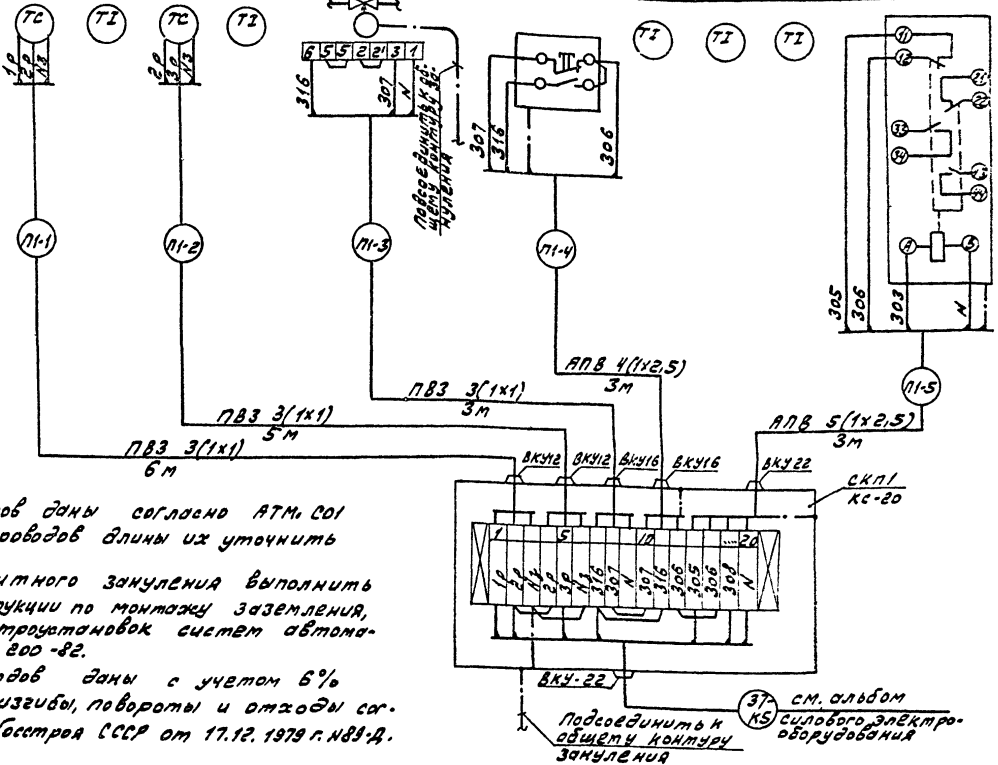 ТС
ТI
ТС
ТI
ТI
ТI
ТI
1Р
2Р
N3
2Р
3Р
N3
6 5 5 2 2' 3 1
316
307
N
Подсоединить к об-
щему контуру за-
нуления
307
316
306
11
12
21
22
33
34
43
44
А
Б
305
306
303
N
П1-1
П1-2
П1-3
П1-4
П1-5
АПВ 4(1х2,5)
3м
ПВ3 3(1х1)
3м
ПВ3 3(1х1)
5м
ПВ3 3(1х1)
6м
АПВ 5(1х2,5)
3м
ВКУ12
ВКУ12
ВКУ16
ВКУ16
ВКУ22
СКП1
КС-20
1 5 10 20
1Р
2Р
N3
2Р
3Р
N3
316
307
N
307
316
306
305
306
308
N
ов даны согласно АТМ. С01
роводов длины их уточнить
итного зануления выполнить
рукции по монтажу заземления,
троустановок систем автома-
200-82.
одов даны с учетом 6%
изгибы, повороты и отходы сог.
Госстроя СССР от 17.12.1979 г. №89-Д.
ВКУ-22
Подсоединить к
общему контуру
зануления
37-
К5
см. альбом
силового электро-
оборудования